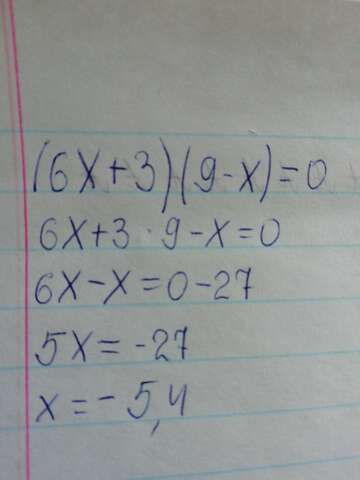 (6x+3)(9-x)=0
6x+3·9-x=0
6x-x=0-27
5x=-27
x=-5,4